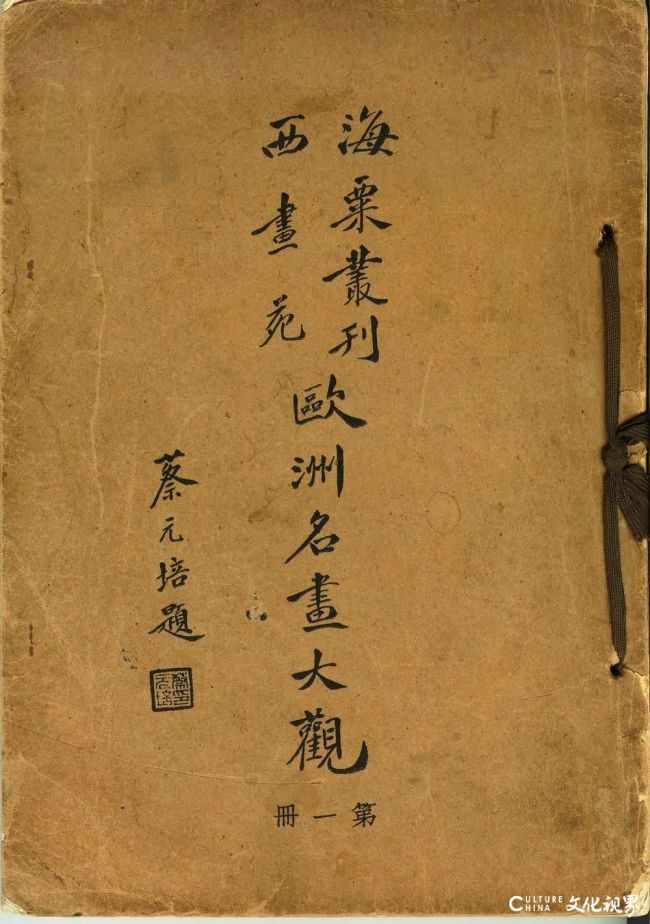 海粟叢刊
西畫苑
歐洲名畫大觀
蔡元培題
第一冊
CULTURE CHINA 文化视界